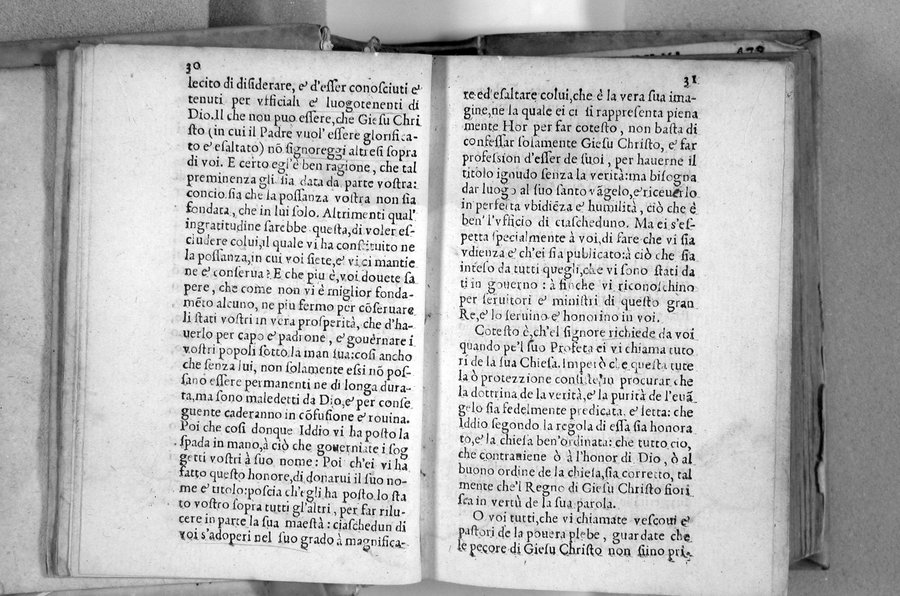 30
lecito di disiderare, e' d'esser conosciuti e'
tenuti per vfficiali e' luogotenenti di
Dio.Il che non puo essere,che Giesu Chri
sto (in cui il Padre vuol' essere glorifica-
to e' esaltato) nō signoreggi altresi sopra
di voi. E certo egl'è ben ragione, che tal
preminenza gli sia data da parte vostra:
concio sia che la possanza vostra non sia
fondata, che in lui solo. Altrimenti qual'
ingratitudine sarebbe questa,di voler es-
cludere colui,il quale vi ha constituito ne
la possanza,in cui voi siete,e' vi ci mantie
ne e' conserua? E che piu è,voi douete sa
pere, che come non vi è miglior fonda-
mēto alcuno, ne piu fermo per cōseruare
li stati vostri in vera prosperità, che d'ha-
uerlo per capo e' padrone, e' gouernare i
vostri popoli sotto la man sua:cosi ancho
che senza lui, non solamente essi nō pos-
sano essere permanenti ne di longa dura-
ta,ma sono maledetti da Dio,e' per conse
guente caderanno in cōfusione e' rouina.
Poi che cosi donque Iddio vi ha posto la
spada in mano,à ciò che gouerniate i sog
getti vostri à suo nome: Poi ch'ei vi ha
fatto questo honore,di donarui il suo no-
me e' titolo:poscia ch'egli ha posto lo sta
to vostro sopra tutti gl'altri, per far rilu-
cere in parte la sua maestà: ciaschedun di
voi s'adoperi nel suo grado à magnifica-
31
re ed esaltare colui,che è la vera sua ima-
gine,ne la quale ei ci si rappresenta piena
mente Hor per far cotesto, non basta di
confessar solamente Giesu Christo, e' far
profession d'esser de suoi, per hauerne il
titolo ignudo senza la verità:ma bisogna
dar luogo al suo santo vāgelo,e'riceuerlo
in perfetta vbidiēza e' humilità, ciò che è
ben' l'vfficio di ciascheduno. Ma ei s'es-
petta specialmente à voi,di fare che vi sia
vdienza e' ch'ei sia publicato:à ciò che sia
inteso da tutti quegli,che vi sono stati da
ti in gouerno: à finche vi riconoschino
per seruitori e' ministri di questo gran
Re,e' lo seruino e' honorino in voi.
Cotesto è,ch'el signore richiede da voi
quando pe'l suo Profeta ei vi chiama tuto
ri de la sua Chiesa. Imperò che questa tute
la ò protezzione consiste,in procurar che
la dottrina de la verità,e' la purità de l'euā
gelo sia fedelmente predicata, e' letta: che
Iddio segondo la regola di essa sia honora
to,e' la chiesa ben'ordinata: che tutto cio,
che contraniene ò à l'honor di Dio, ò al
buono ordine de la chiesa,sia corretto, tal
mente che'l Regno di Giesu Christo fiori
sca in vertù de la sua parola.
O voi tutti,che vi chiamate vescoui e'
pastori de la pouera plebe, guardate che
le pecore di Giesu Christo non siino pri-